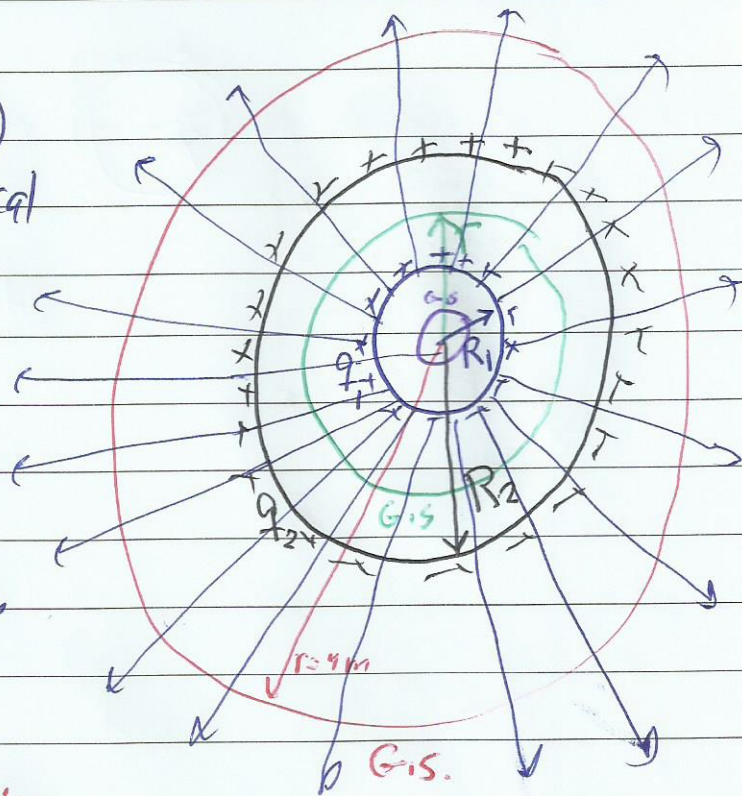 cal
G.S
R1
q1
R2
G.S
q2
r=4m
G.S.